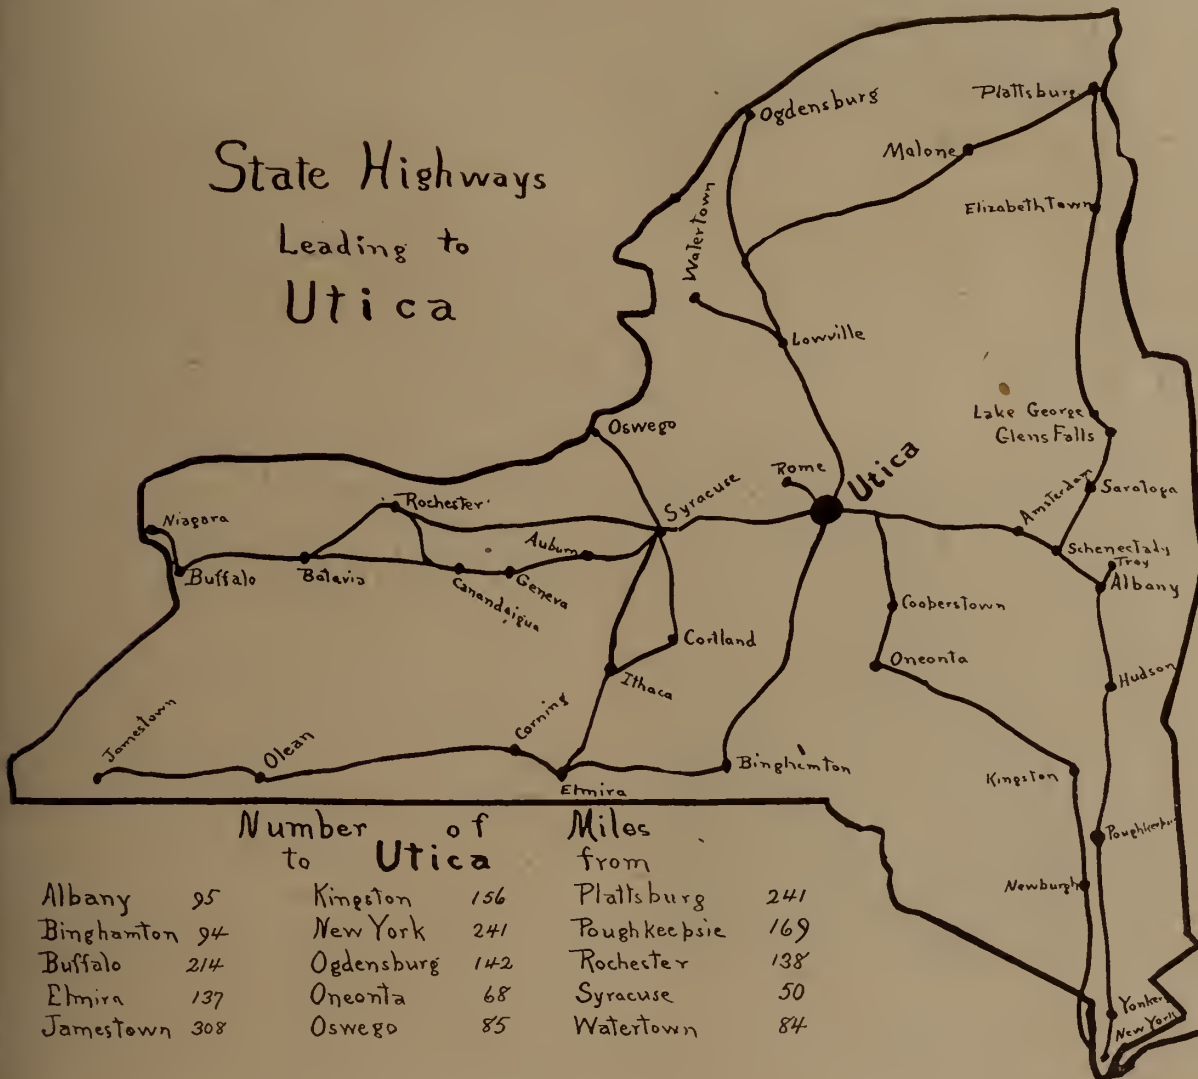 State Highways
Leading to
Utica
Ogdensburg
Plattsburg
Malone
Elizabethtown
Watertown
Lowville
Lake George
Glens Falls
Oswego
Rome
Utica
Syracuse
Amsterdam
Saratoga
Rochester
Niagara
Auburn
Schenectady
Troy
Albany
Buffalo
Batavia
Canandaigua
Geneva
Cooperstown
Cortland
Oneonta
Ithaca
Hudson
Jamestown
Olean
Corning
Elmira
Binghamton
Kingston
Poughkeepsie
Newburgh
Yonkers
New York
Number of Miles
to Utica from
Albany 95 Kingston 156 Plattsburg 241
Binghamton 94 New York 241 Poughkeepsie 169
Buffalo 214 Ogdensburg 142 Rochester 138
Elmira 137 Oneonta 68 Syracuse 50
Jamestown 308 Oswego 85 Watertown 84